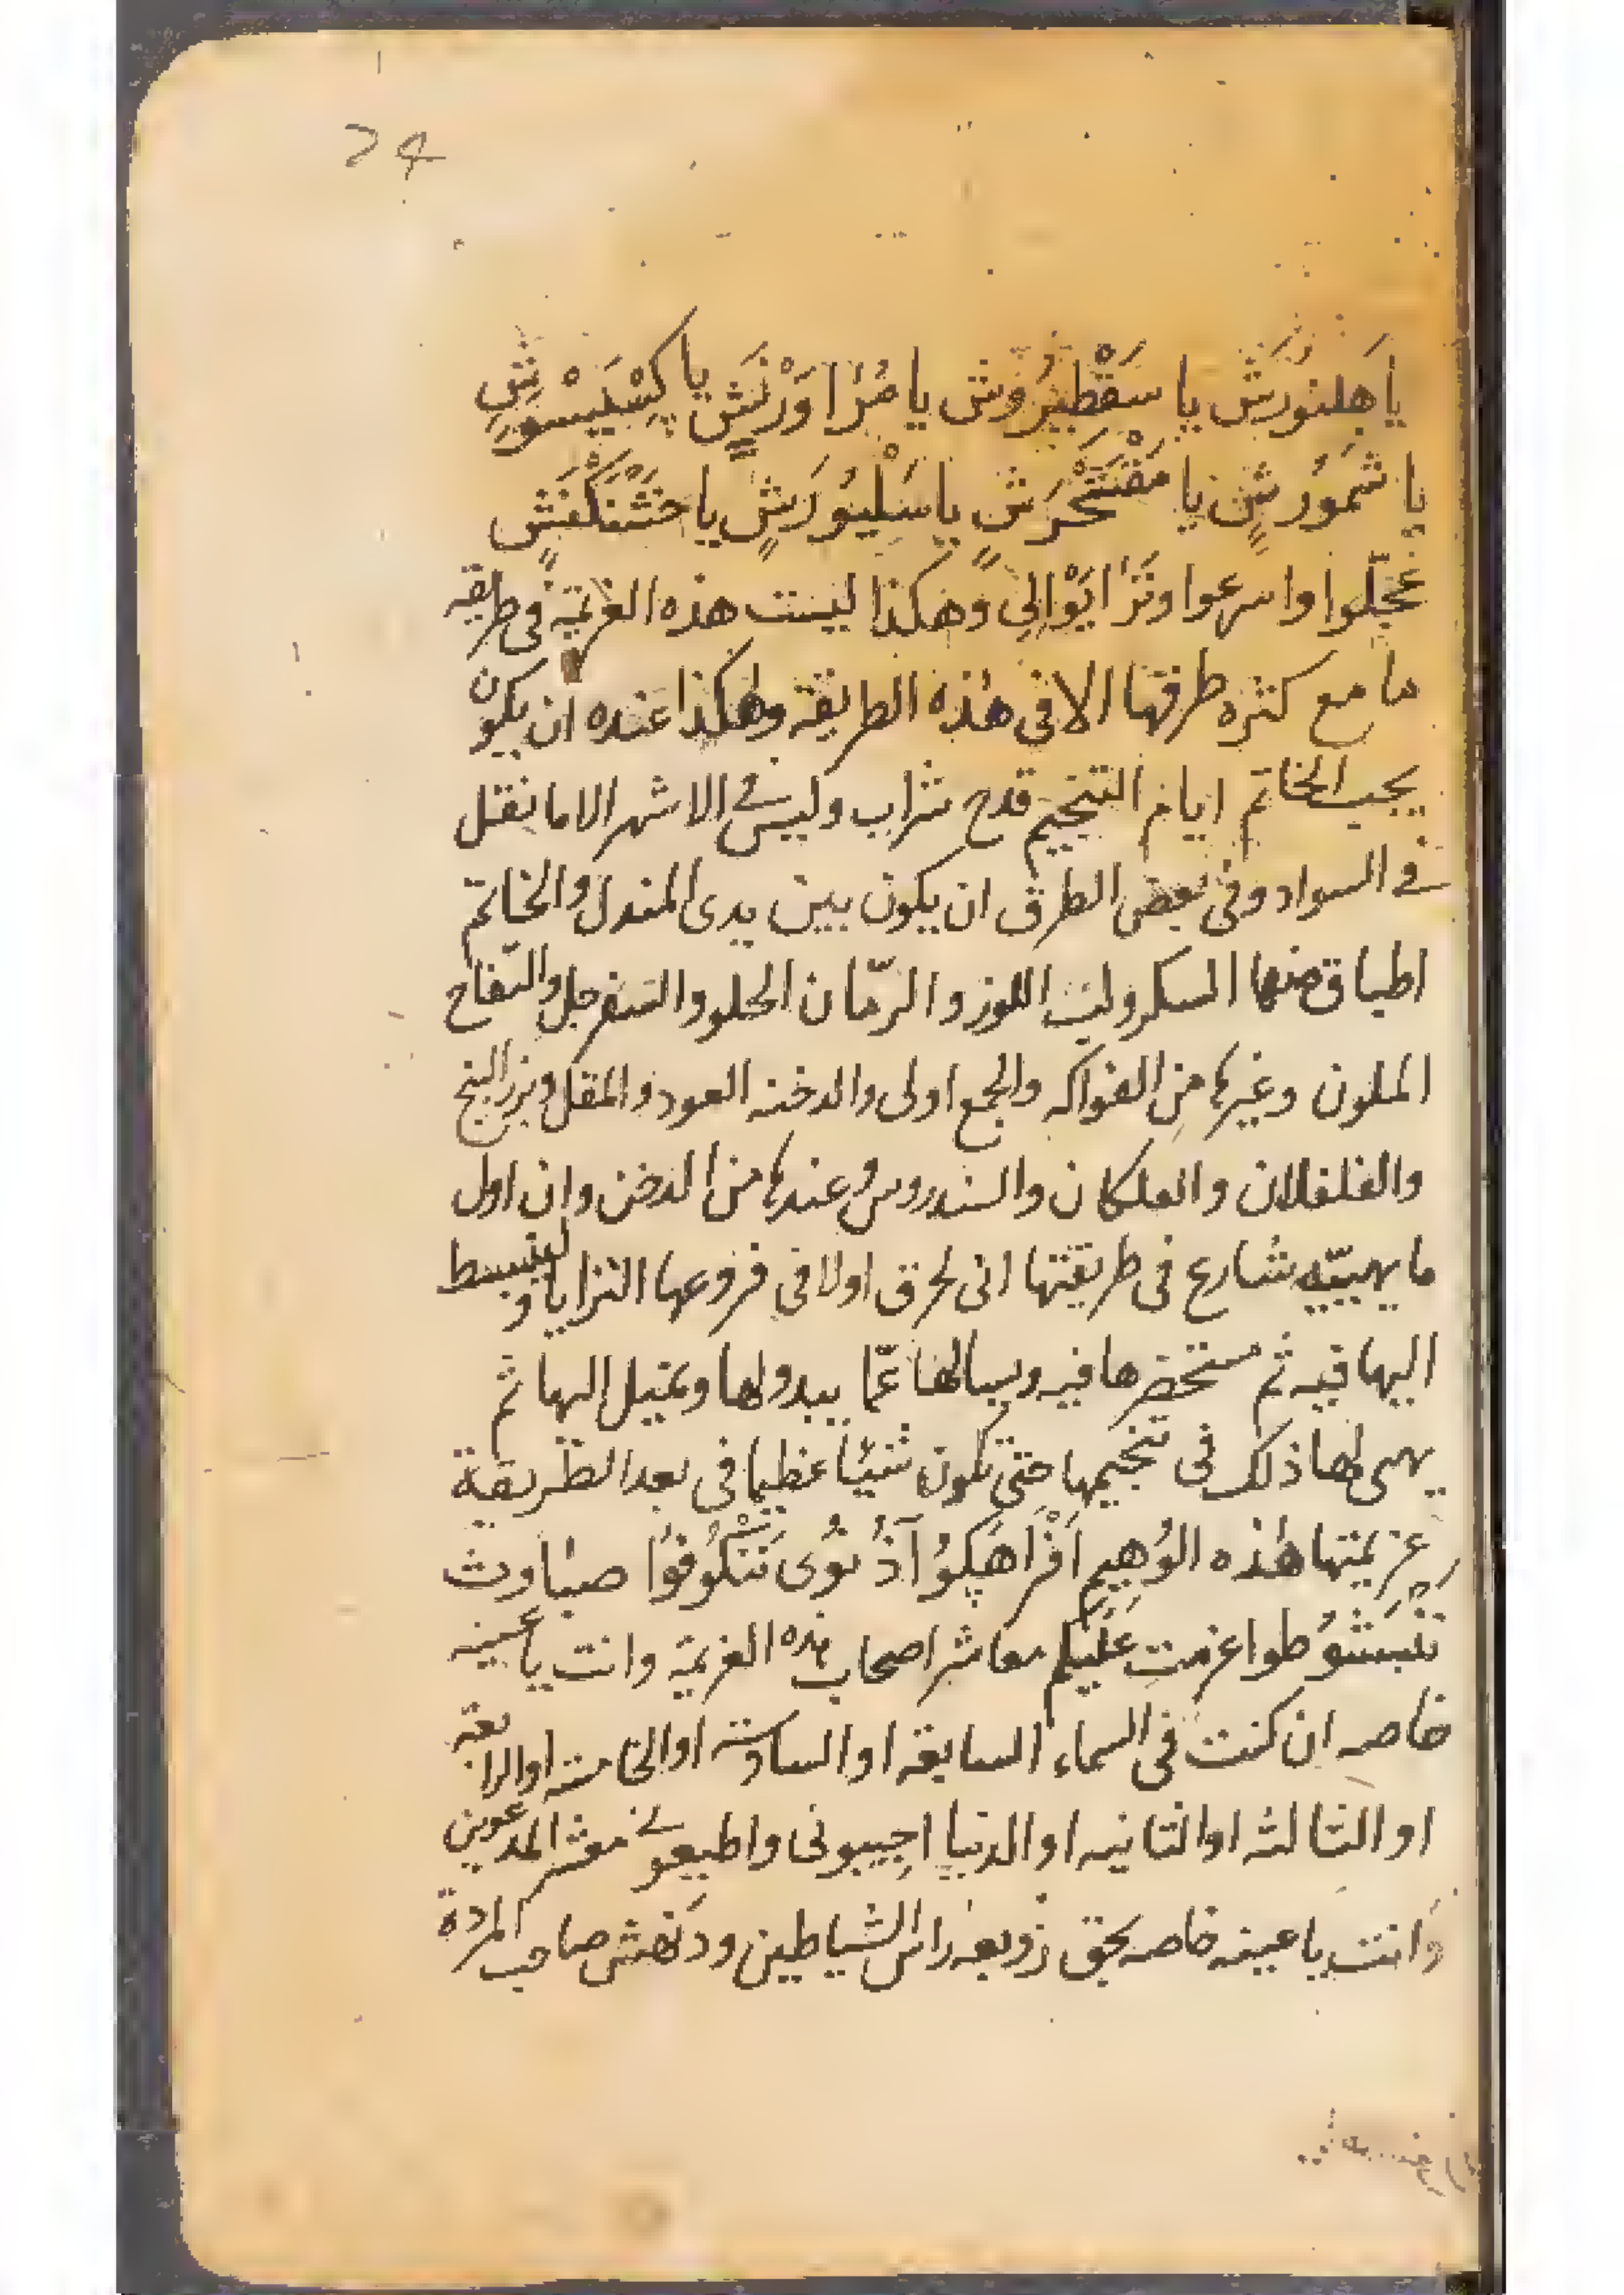 24
يا هلنورش يا سقطيروش يا مرا ورنش يا كسليسورش
يا شمورش يا مفتحرش يا سليورش يا خشنكفش
عجّلوا واسرعوا وترايوا لى وهكذا ليست هذه العزيمة فى طريقه
ما مع كثره طرقها الا فى هذه الطريقه وهكذا عنده ان يكون
يجيب الخاتم ايام التنجيم قدح شراب وليس في الاشهر الا ما نقل
في السواد وفى بعض الطرق ان يكون بين يدى المندل والخاتم
اطباق منها السكر ولبّ اللوز والرّمان الحلو والسفرجل والتفاح
الملون وغيرها من الفواكه والجمع اولى والدخنه العود والمقل وبزر البنج
والفلفلان والعلكان والسندروس وعندها من الدخن وان اول
ما يهيّيه شارع فى طريقتها ان يحرق اولا فى فروعها الترايا وينبسط
اليها فيه ثم يستحضرها فيه ويسالها عمّا يبدو لها ويميل اليها ثم
يهى لها ذلك فى تنجيمها حتى تكون شيئا عظيما فى بعد الطريقة
عزيمتها هذه الوهيم افراهيكو آذنوى تتكوفوا صباوث
طوا عزمت عليكم معاشر اصحاب هذه العزيمة وانت يا عينه
خاصه ان كنت فى السماء السابعة او السادسة او الخامسة او الرابعة
او الثالثه او الثانيه او الدنيا اجيبونى واطيعوني معشر المدعوين
وانت يا عينه خاصه بحق زوبعه راس الشياطين ودنهش صاحب المردة